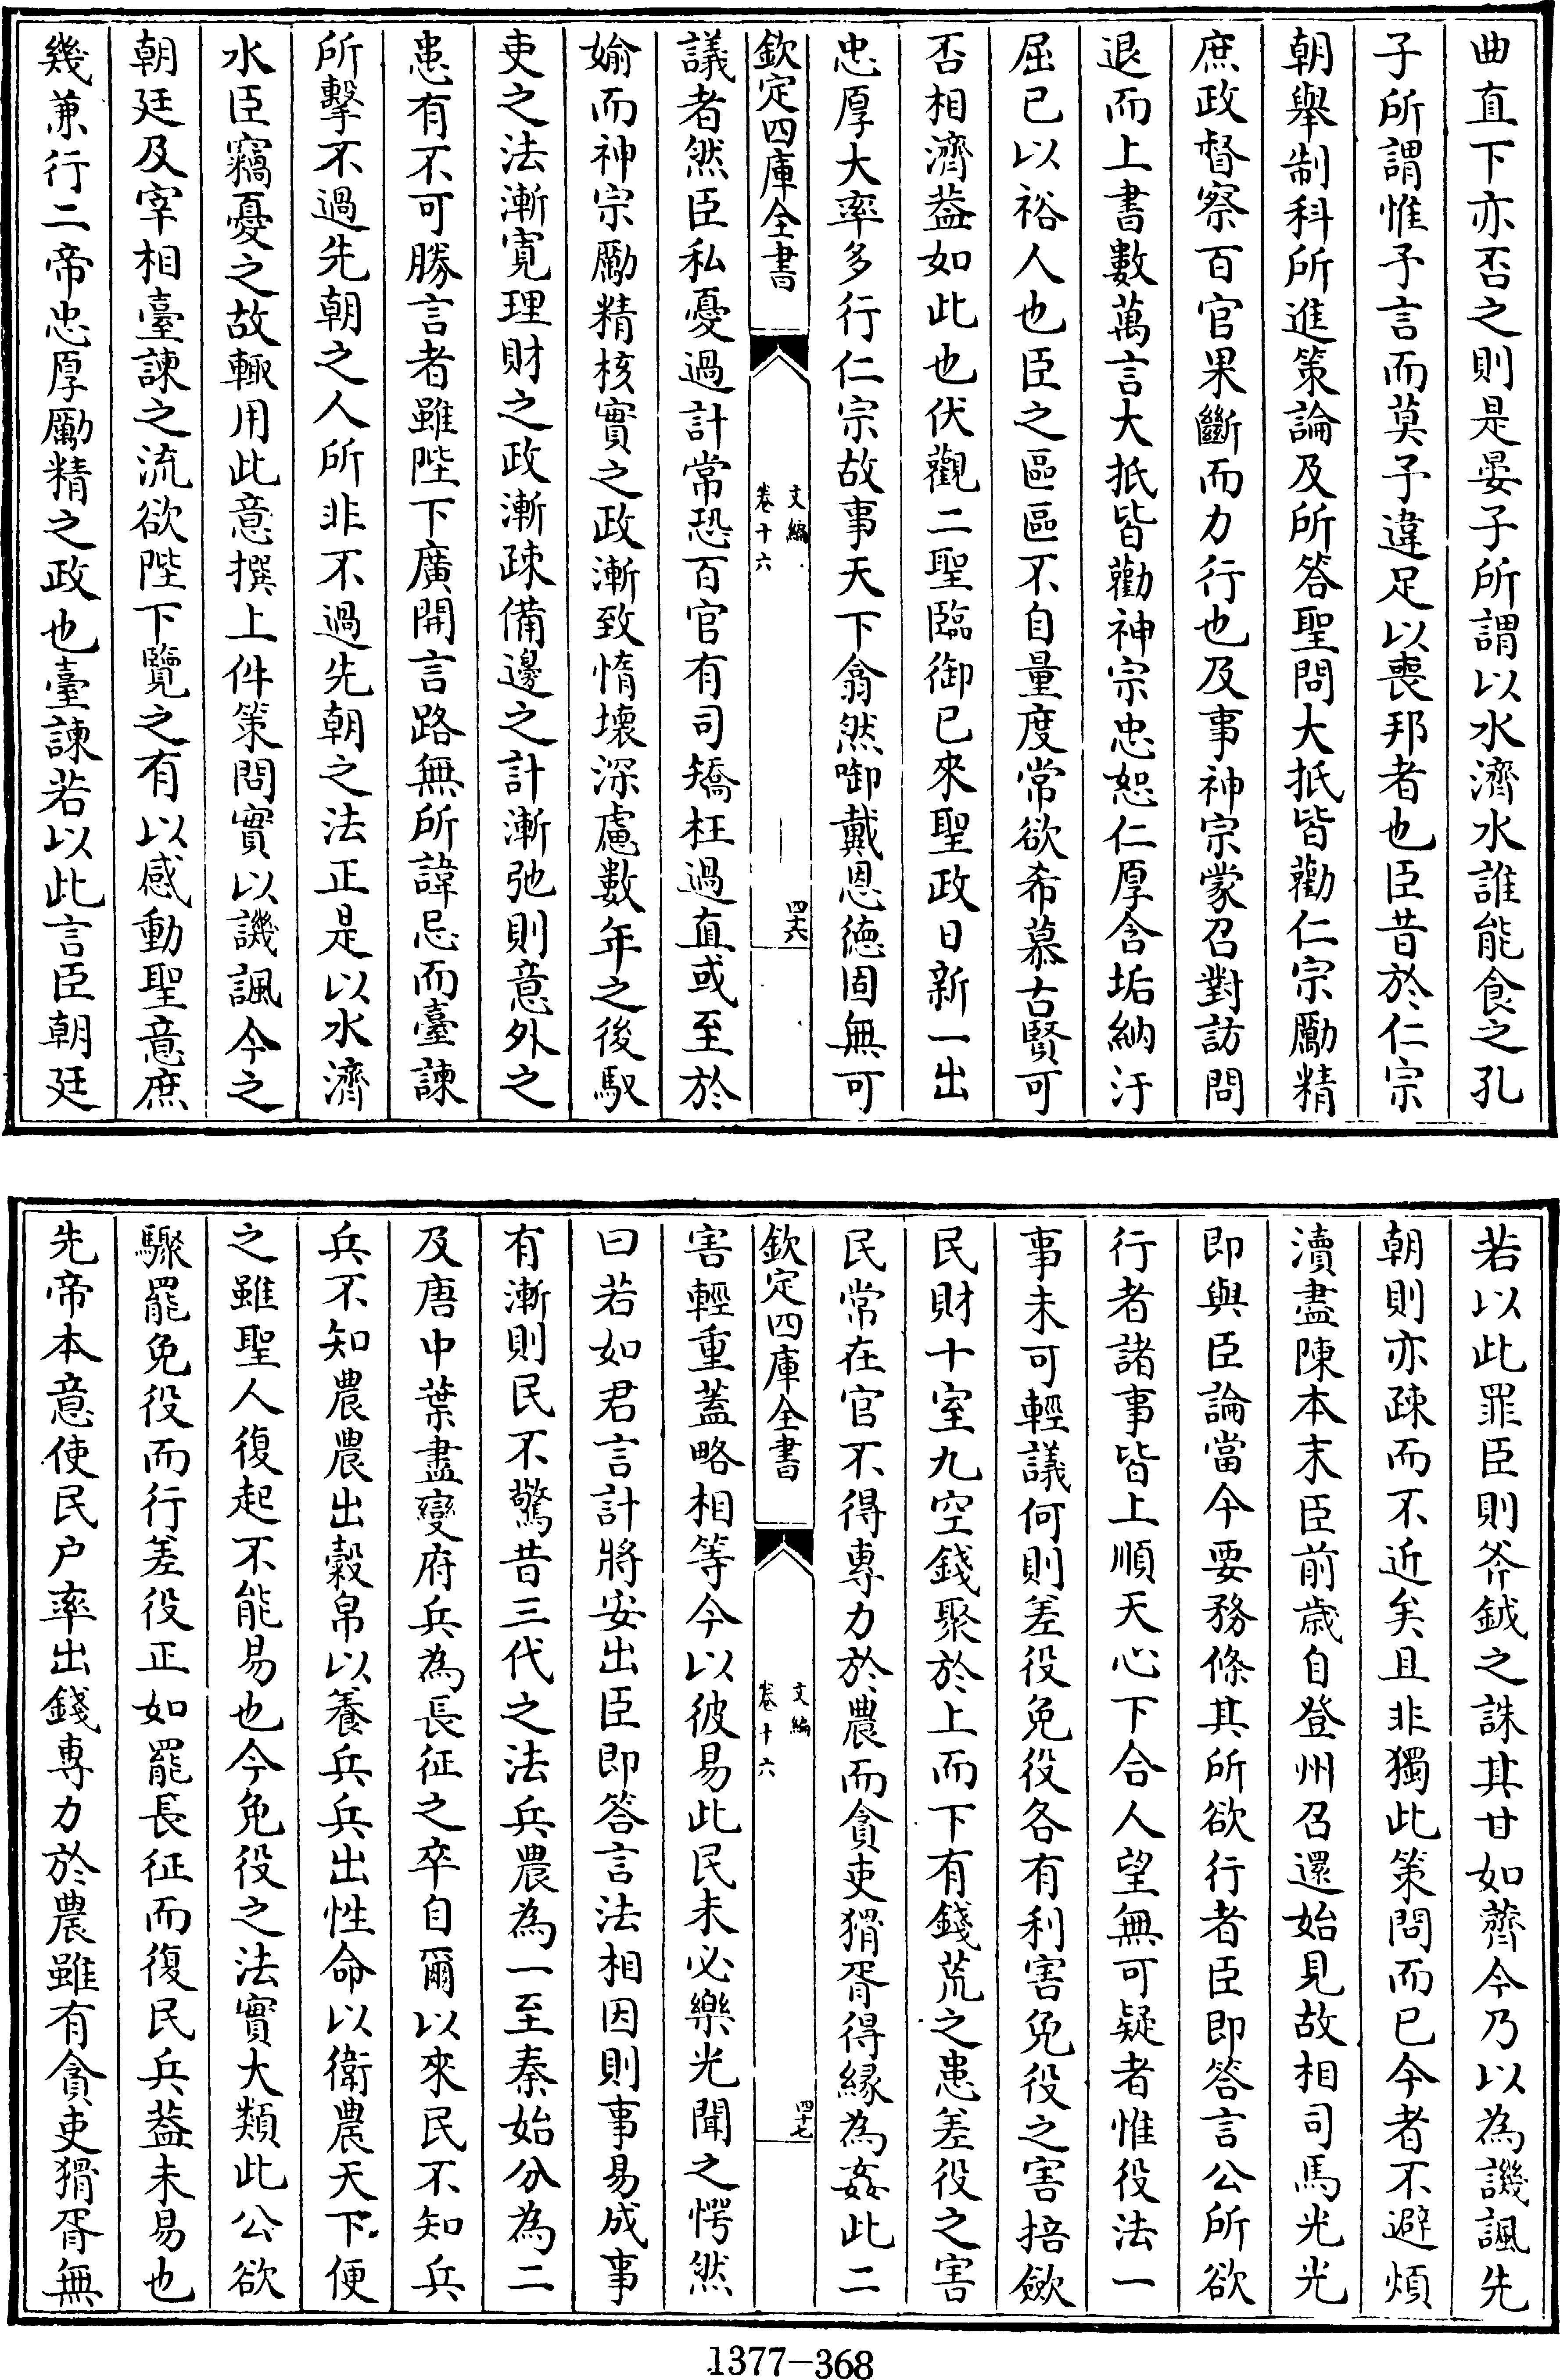 曲直下亦否之則是晏子所謂以水濟水誰能食之孔
子所謂惟予言而莫予違足以喪邦者也臣昔於仁宗
朝舉制科所進策論及所答聖問大抵皆勸仁宗勵精
庶政督察百官果斷而力行也及事神宗蒙召對訪問
退而上書數萬言大抵皆勸神宗忠恕仁厚含垢納汙
屈已以裕人也臣之區區不自量度常欲希慕古賢可
否相濟葢如此也伏觀二聖臨御已來聖政日新一出
忠厚大率多行仁宗故事天下翕然啣戴恩德固無可
欽定四庫全書
文編
卷十六
四十六
議者然臣私憂過計常恐百官有司矯枉過直或至於
媮而神宗勵精核實之政漸致惰壞深慮數年之後馭
吏之法漸寛理財之政漸疎備邊之計漸弛則意外之
患有不可勝言者雖陛下廣開言路無所諱忌而臺諫
所擊不過先朝之人所非不過先朝之法正是以水濟
水臣竊憂之故輙用此意撰上件策問實以譏諷今之
朝廷及宰相臺諫之流欲陛下覽之有以感動聖意庶
幾兼行二帝忠厚勵精之政也臺諫若以此言臣朝廷
若以此罪臣則斧鉞之誅其甘如薺今乃以為譏諷先
朝則亦疎而不近矣且非獨此策問而已今者不避煩
瀆盡陳本末臣前歳自登州召還始見故相司馬光光
即與臣論當今要務條其所欲行者臣即答言公所欲
行者諸事皆上順天心下合人望無可疑者惟役法一
事未可輕議何則差役免役各有利害免役之害掊斂
民財十室九空錢聚於上而下有錢荒之患差役之害
民常在官不得專力於農而貪吏猾胥得緣為姦此二
欽定四庫全書
文編
卷十六
四十七
害輕重葢略相等今以彼易此民未必樂光聞之愕然
曰若如君言計將安出臣即答言法相因則事易成事
有漸則民不驚昔三代之法兵農為一至秦始分為二
及唐中葉盡變府兵為長征之卒自爾以來民不知兵
兵不知農農出穀帛以養兵兵出性命以衛農天下便
之雖聖人復起不能易也今免役之法實大類此公欲
驟罷免役而行差役正如罷長征而復民兵葢未易也
先帝本意使民户率出錢專力於農雖有貪吏猾胥無
1377-368